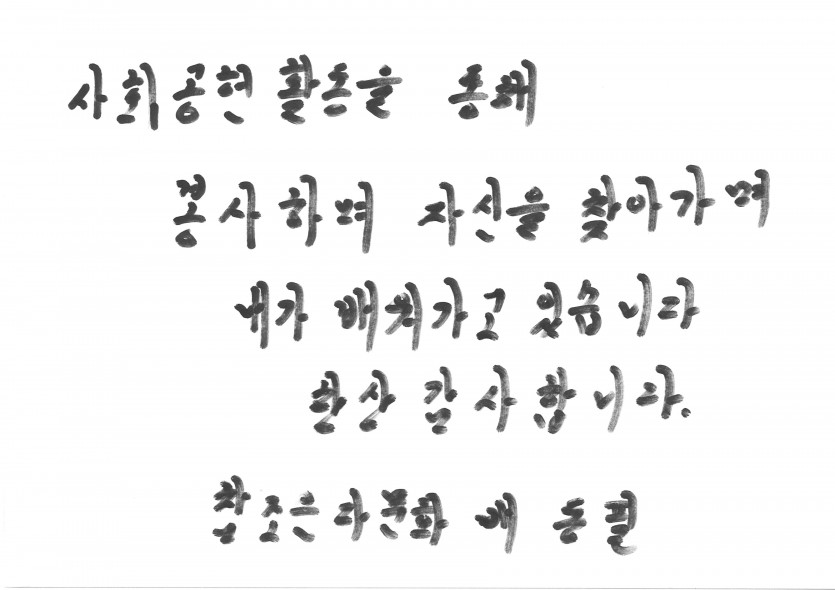 사회공헌 활동을 통해
봉사하며 자신을 찾아가며
내가 배워가고 있습니다
항상 감사합니다.
참조은다문화 배 동필